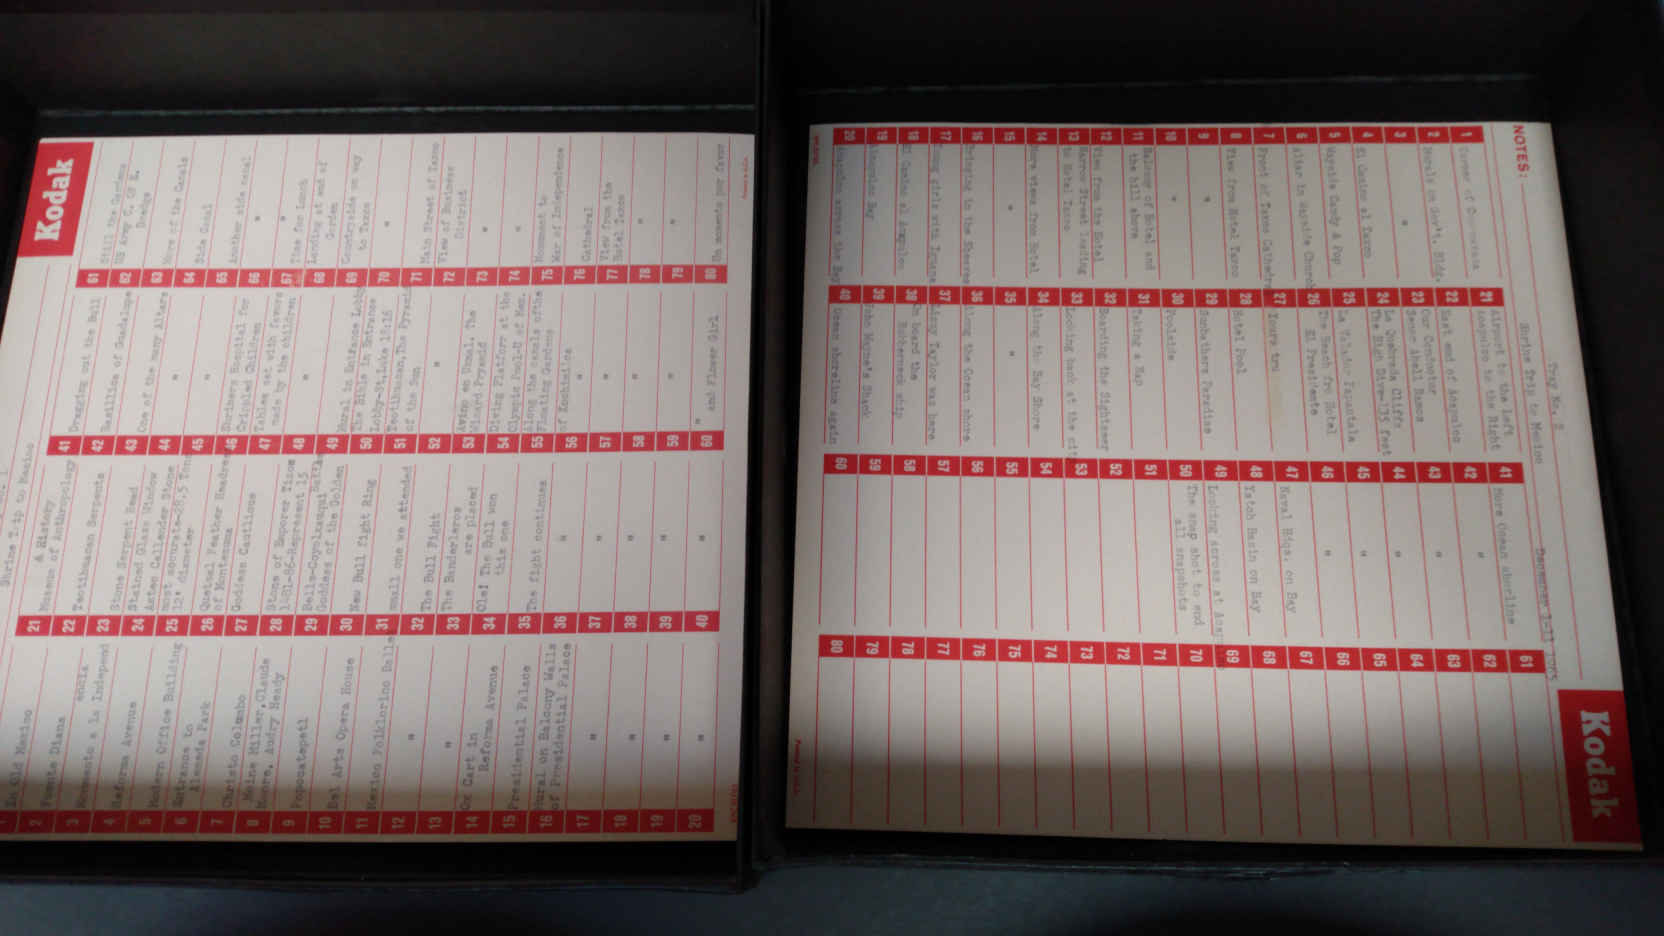 Kodak
Shrine Trip to Mexico
1 In Old Mexico
2 Fuente Diana
3 Monmento a la Independ
encia
4 Reforma Avenue
5 Modern Office Building
6 Entranus to
Alameda Park
7 Christo Colombo
8 Maine Miller, Claude
Moore, Audry Ready
9 Popocatepetl
10 Bel Arts Opera House
11 Mexico Folklorino Balle
12 "
13 "
14 Ox Cart in
Reforma Avenue
15 Presidential Palace
16 Mural on Balcony Walls
of Presidential Palace
17 "
18 "
19 "
20 "
21 A History
Museum of Anthropology
22 Teotihuacan Serpents
23 Stone Serpent Head
24 Stained Glass Window
25 Aztec Callender Stone
most accurate-28.5 Tons
12' diameter
26 Quetzal Feather Headress
of Montezuma
27 Goddess Cautlicoe
28 Stone of Emporer Tizoc
1481-86-Represent 15
29
Goddess of the Golden
30 New Bull fight Ring
31 small one we attended
32 The Bull Fight
33 The Banderleros
are placed
34 Ole! The Bull won
this one
35 The fight continues
36 "
37 "
38 "
39 "
40 "
41 Dragging out the Bull
42 Basillica of Guadalupe
43 One of the many Altars
44 "
45 "
46 Shriners Hospital for
Crippled Children
47 Tables set with favors
made by the children
48 "
49 Mural in Entrance Lobby
50 The Bible in Entrance
Lobby-St. Luke 18:16
51 Teotihuacan, The Pyramid
of the Sun
52 "
53 Avino en Uxmal. The
Wizard Pryamid
54 Diving Platforr at the
Olympic Pool-U of Mex.
55 Along the canals ofthe
Floating Gardens
56 of Xochimilca
57 "
58 "
59 "
60 "
61 Still the Gardens
62 US Army C. of E.
Dredge
63 More of the Canals
64 Side Canal
65 Another side canal
66 "
67 Time for Lunch
68 Landing at end of
Garden
69 Countryside on way
to Taxco
70 "
71 Main Street of Taxco
72 View of Business
District
73 "
74 "
75 Monument to
War of Independence
76 Cathedral
77 View from the
Hotel Taxco
78 "
79 "
80 Un momento por favor
and Flower Girl
NOTES:
Tray No. 2
Shrine Trip to Mexico
December 1-11
Kodak
1
2 Murals on Gov't. Bldg.
3 "
4 El Casino at Taxco
5 Wayside Candy & Pop
6 Altar in Wayside Church
7 Front of Taxco Cathedra
8 View from Hotel Taxco
9 "
10 "
11 Balcony of Hotel and
the hill above
12 View from the Hotel
13 Narrow Street leading
to Hotel Taxco
14 More view from Hotel
15 "
16 Bringing in the Sheaves
17 Young girls with Iguana
18 El Camino al Acapulco
19 Acapulco Bay
20 Acapulco across the Bay
21 Airport to the Left
Acapulco to the Right
22 East end of Acapulco
23 Our Conductor
Senor Abell Ramos
24 La Quebrada Cliffs
The High Dive-135 feet
25 La Valador Papantala
26 The Beach fro Hotel
El Presidente
27 Yours tru
28 Hotel Pool
29 Sunbathers Paradise
30 Poolside
31 Taking a Nap
32 Boarding the Sightseer
33 Looking back at the cit
34 Along the Bay Shore
35 "
36 Along the Ocean shore
37 Lizzy Taylor was here
38 On board the
Rubberneck ship
39 John Wayne's Shack
40 Ocean shoreline again
41 More Ocean shorline
42 "
43 "
44 "
45 "
46 "
47 Naval Rics. on Bay
48 Yatch Basin on Bay
49 Looking across at Acap
50 The snap shot to end
all snapshots
51
52
53
54
55
56
57
58
59
60
61
62
63
64
65
66
67
68
69
70
71
72
73
74
75
76
77
78
79
80